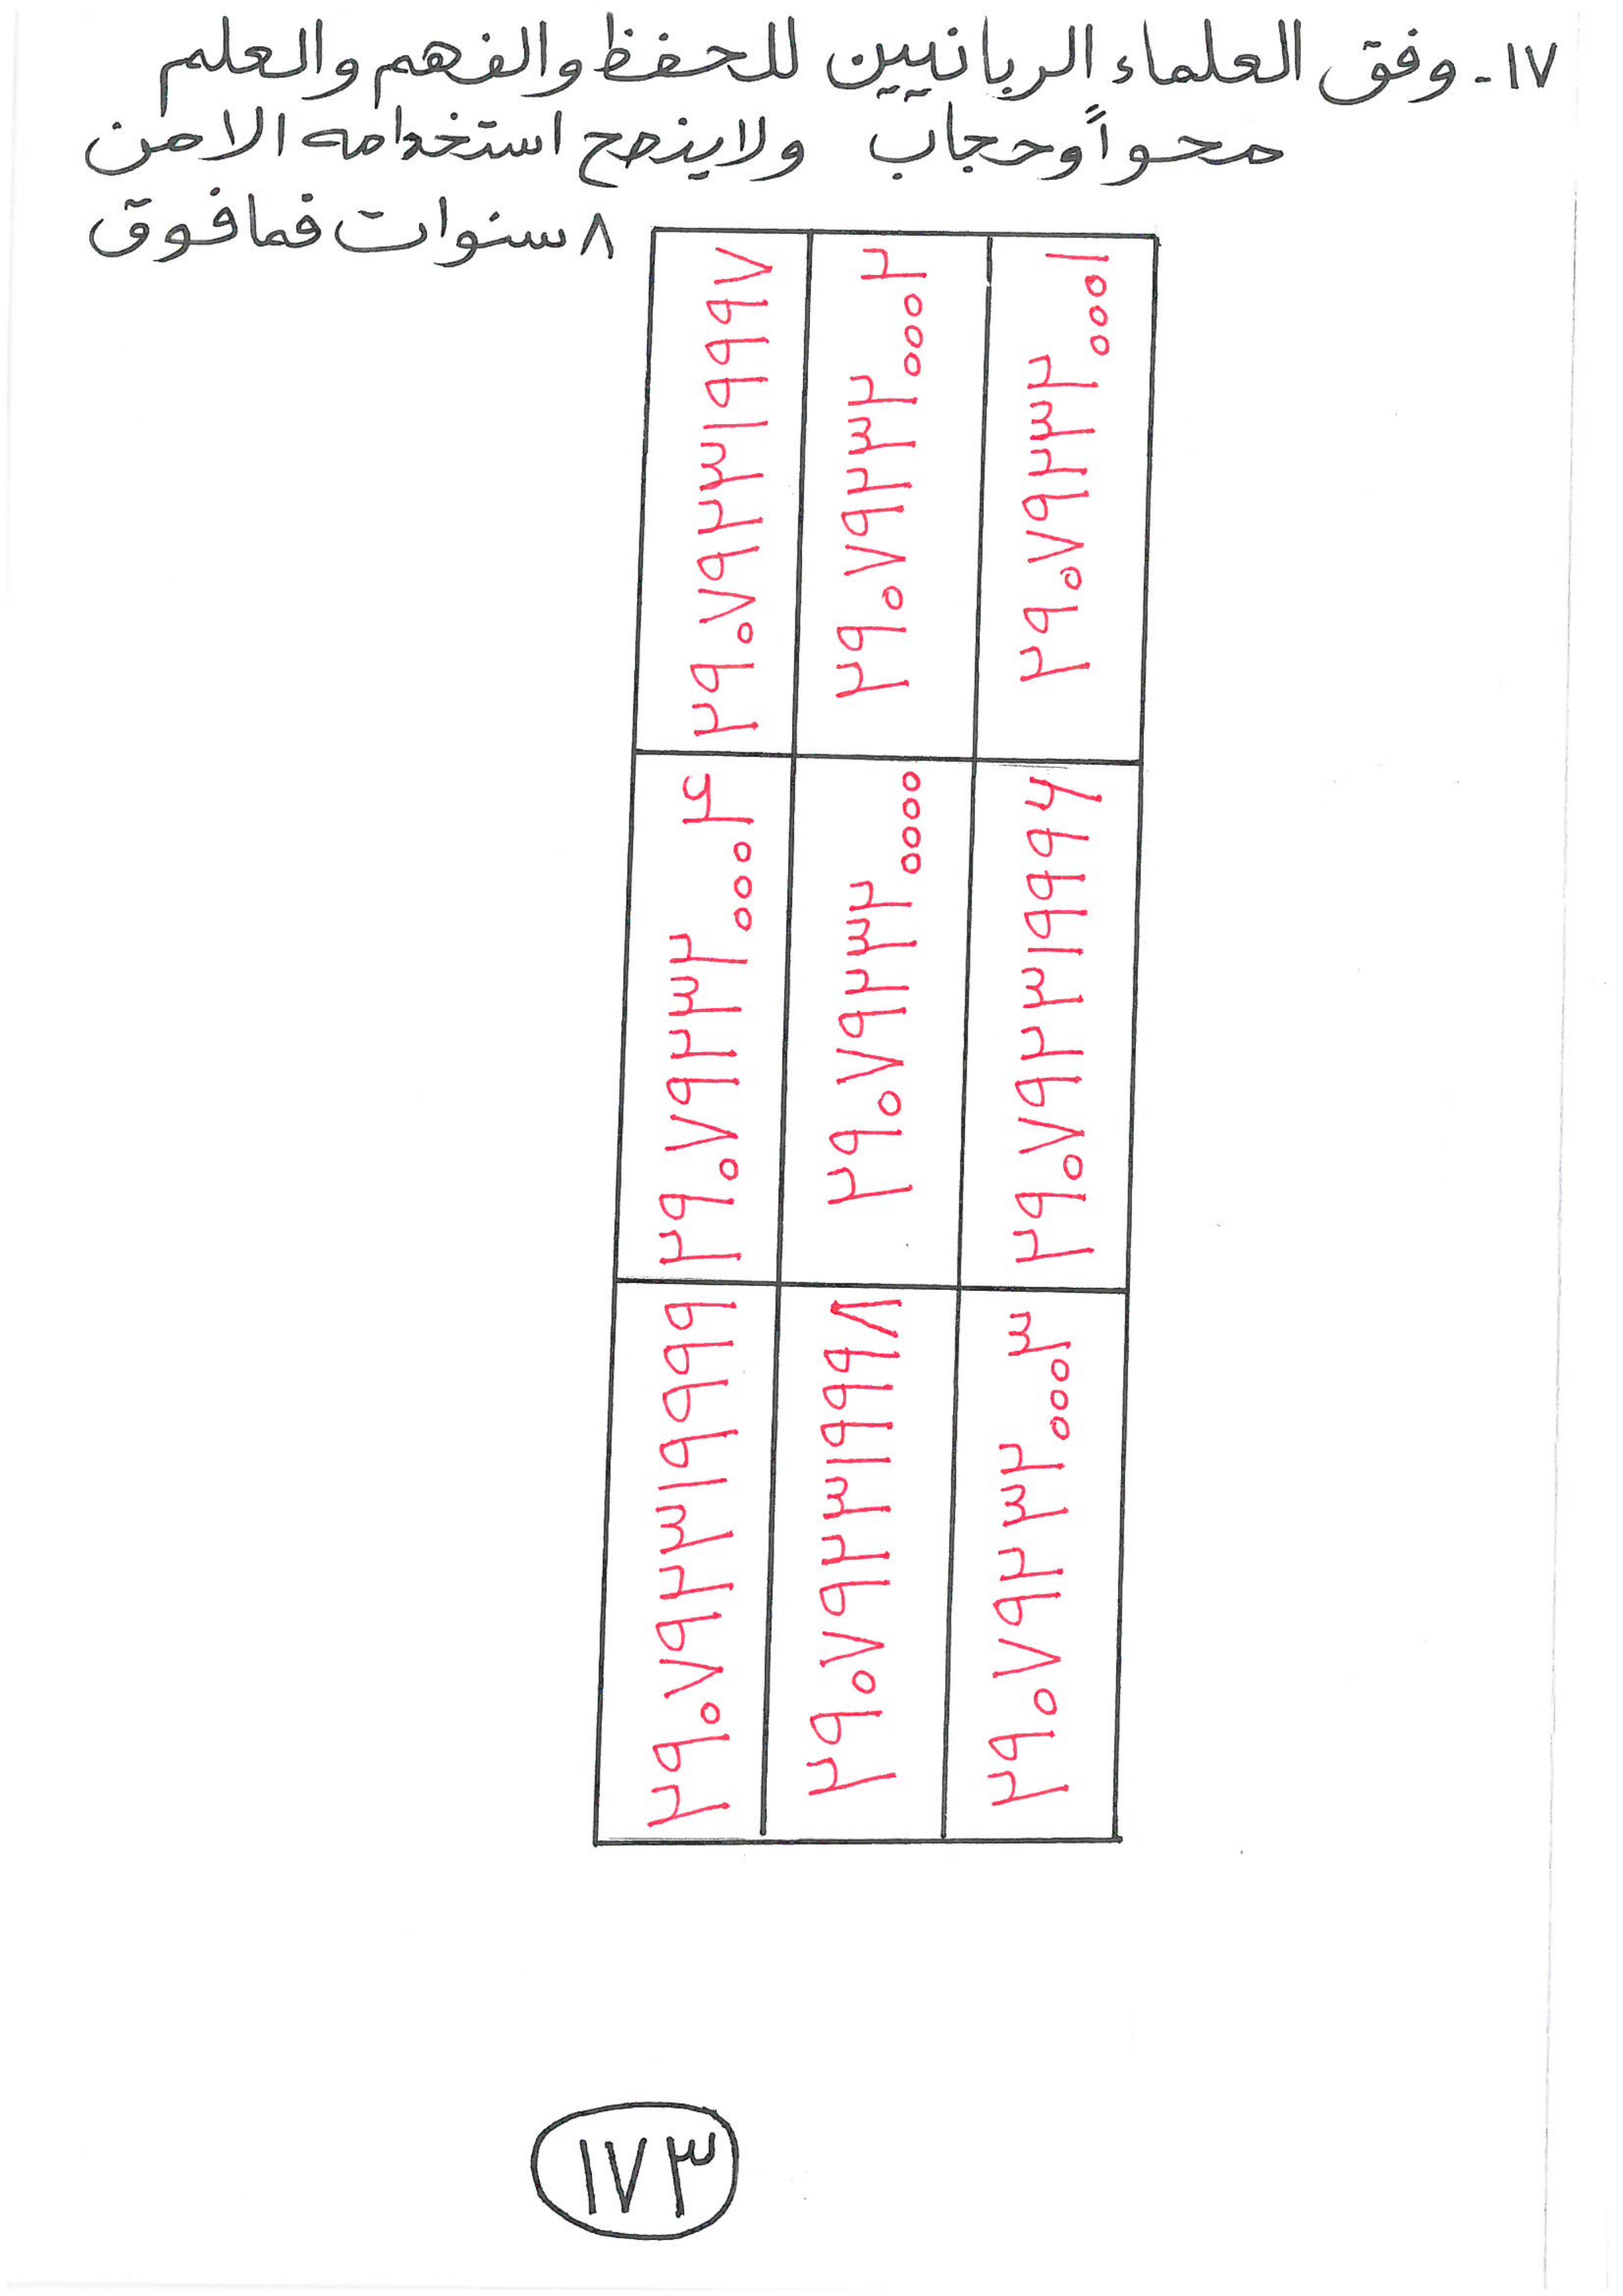 ١٧- وفق العلماء الربانيين للحفظ والفهم والعلم
محواً وحجاب ولا ينصح استخدامه الا من
٨ سنوات فما فوق
٢٩٠٧٩٢٣١٩٩٩٧ ٢٩٠٧٩٢٣٢٠٠٠٤ ٢٩٠٧٩٢٣١٩٩٩٩
٢٩٠٧٩٢٣٢٠٠٠٢ ٢٩٠٧٩٢٣٢٠٠٠٠ ٢٩٠٧٩٢٣١٩٩٩٨
٢٩٠٧٩٢٣٢٠٠٠١ ٢٩٠٧٩٢٣١٩٩٩٦ ٢٩٠٧٩٢٣٢٠٠٠٣
١٧٣